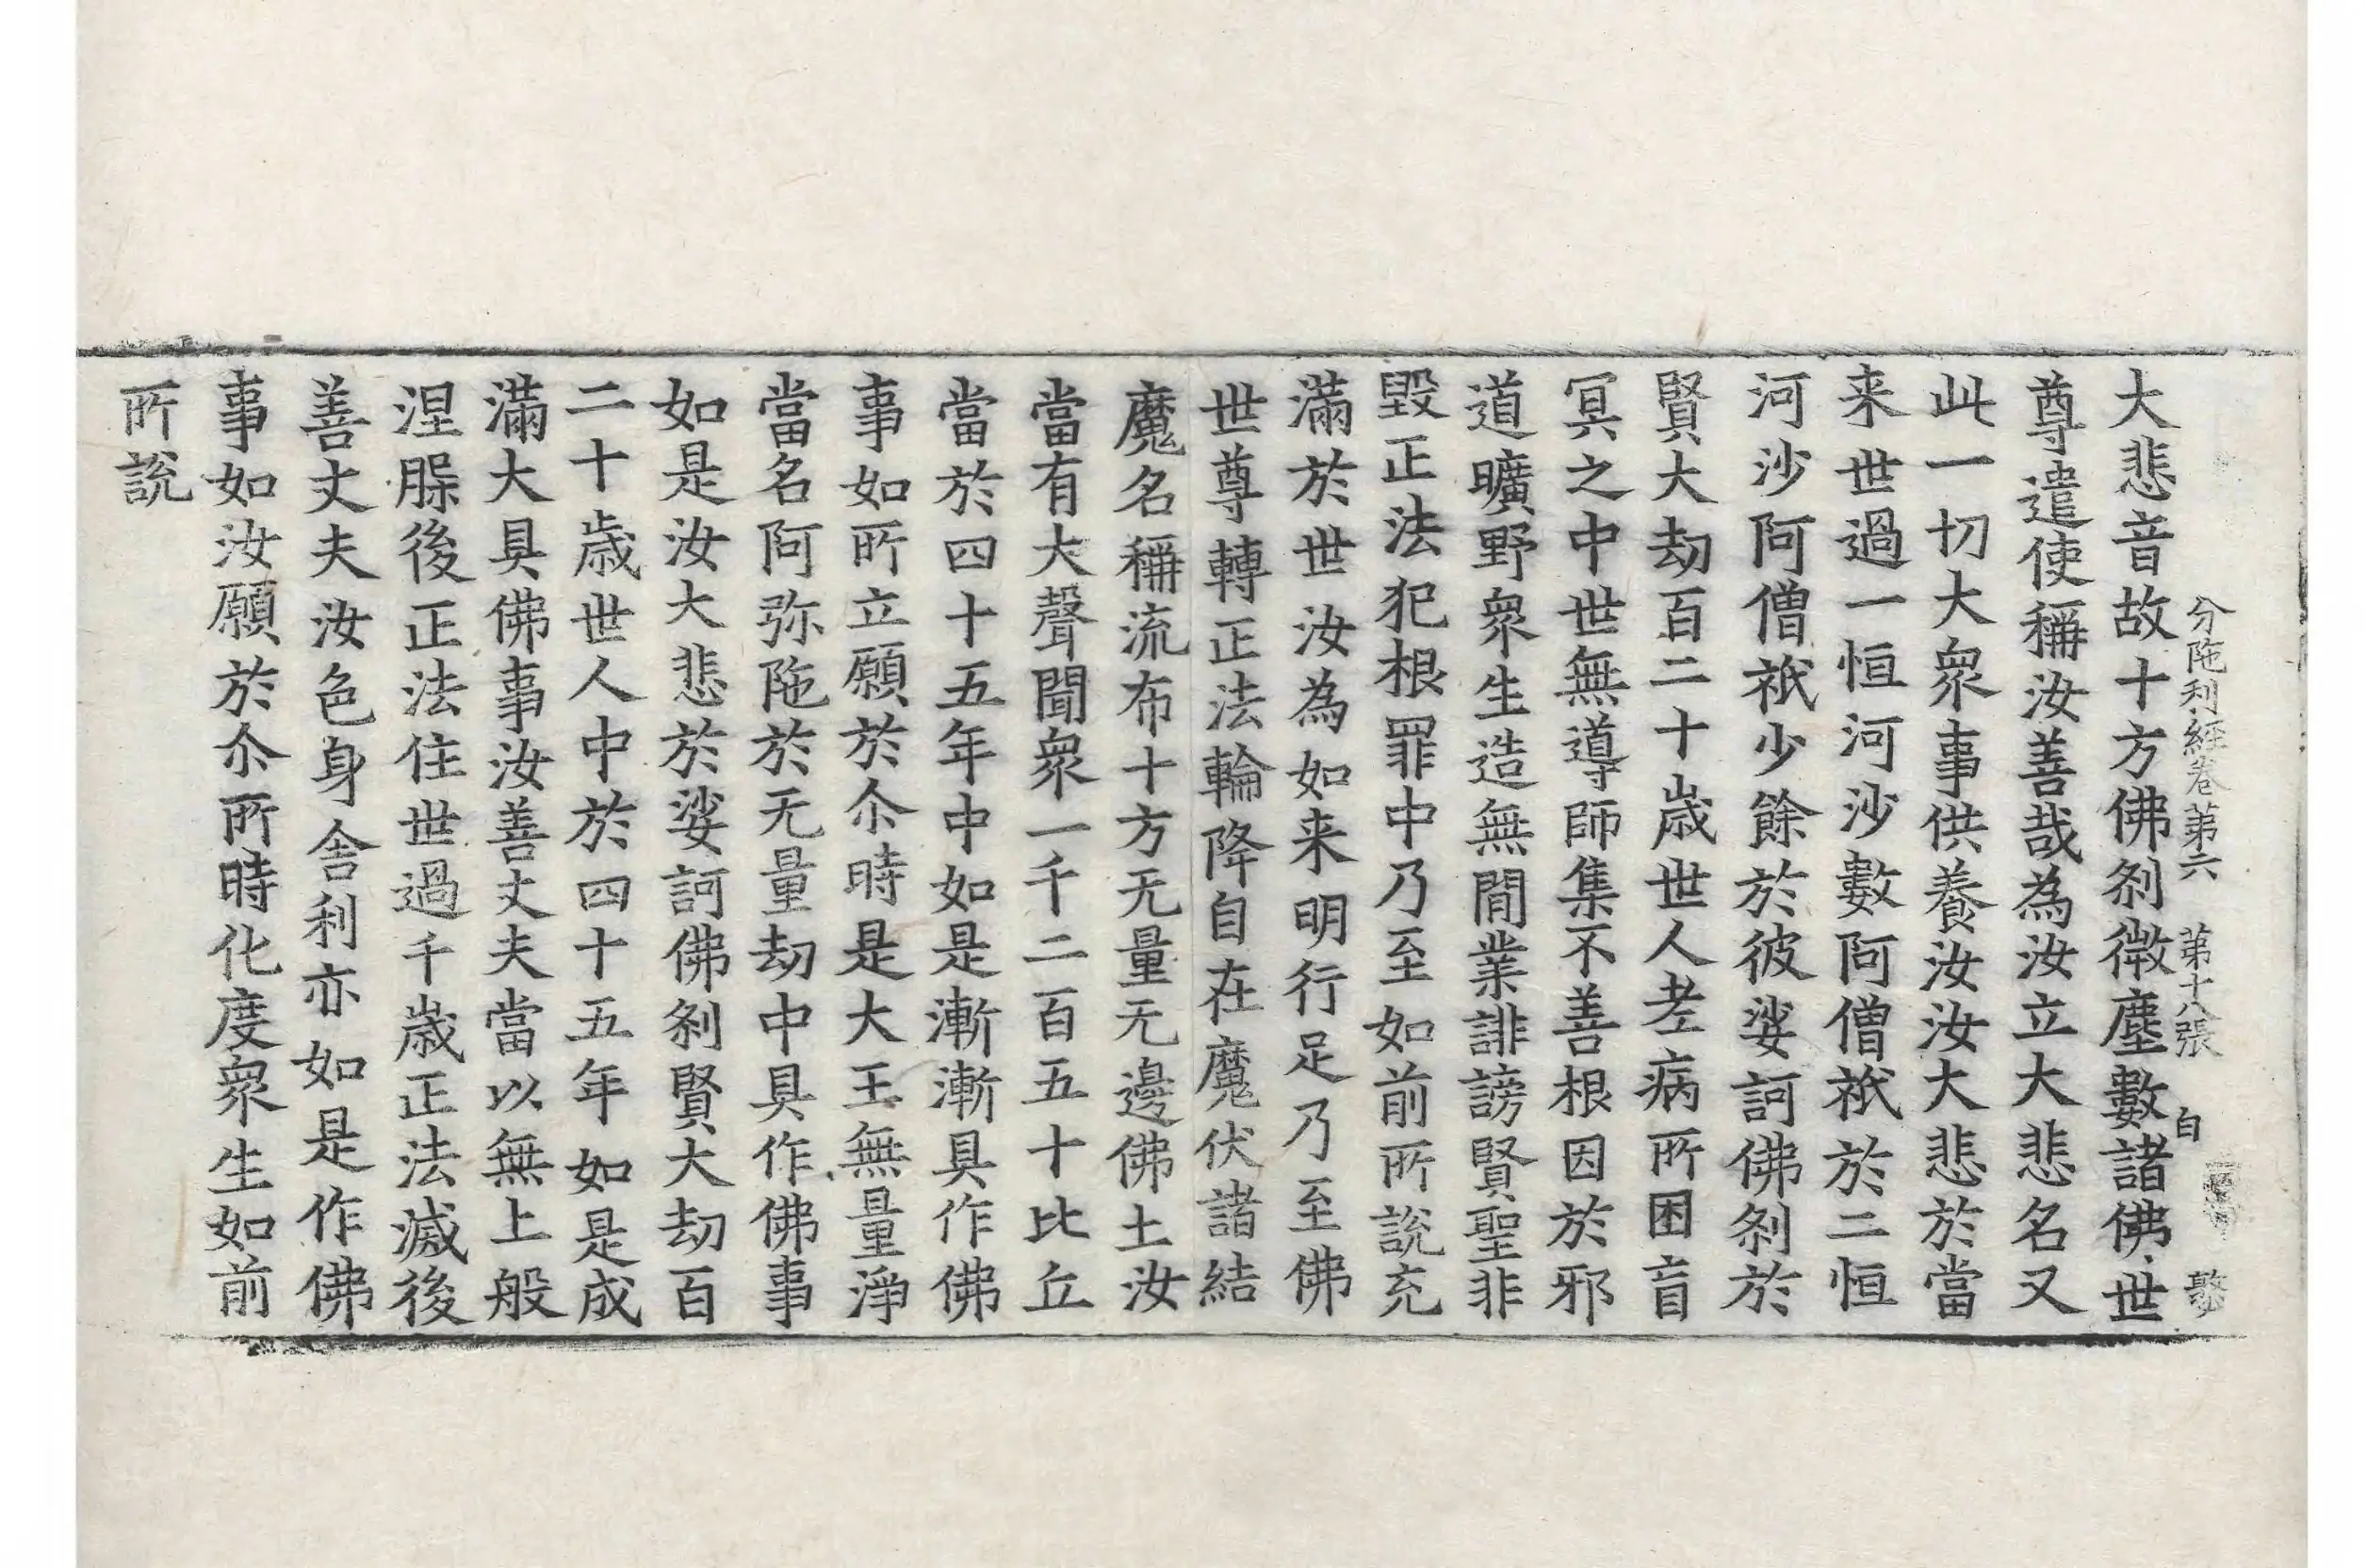 分陁利經卷第六 第十八張 自
大悲音故十方佛剎微塵數諸佛世
尊遣使稱汝善哉為汝立大悲名又
此一切大衆事供養汝汝大悲於當
来世過一恒河沙數阿僧祇於二恒
河沙阿僧祇少餘於彼娑訶佛剎於
賢大劫百二十歳世人老病所困盲
冥之中世無導師集不善根因於邪
道曠野衆生造無間業誹謗賢聖非
毀正法犯根罪中乃至如前所說充
滿於世汝為如来明行足乃至佛
世尊轉正法輪降自在魔伏諸結
魔名稱流布十方无量无邊佛土汝
當有大聲聞衆一千二百五十比丘
當於四十五年中如是漸漸具作佛
事如所立願於尒時是大王無量淨
當名阿弥陁於无量劫中具作佛事
如是汝大悲於娑訶佛剎賢大劫百
二十歳世人中於四十五年如是成
滿大具佛事汝善丈夫當以無上般
涅槃後正法住世過千歳正法滅後
善丈夫汝色身舍利亦如是作佛
事如汝願於尒所時化度衆生如前
所說